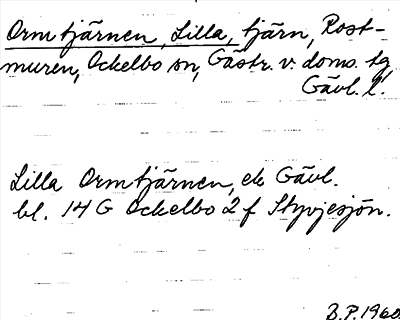 Ormtjärnen, Lilla, tjärn, Rost-
muren, Ockelbo sn, Gästr. v. doms. tg,
Gävl. l.
Lilla Ormtjärnen, ek Gävl.
bl. 14 G Ockelbo 2 f Styvjesjön.
B.P. 1960